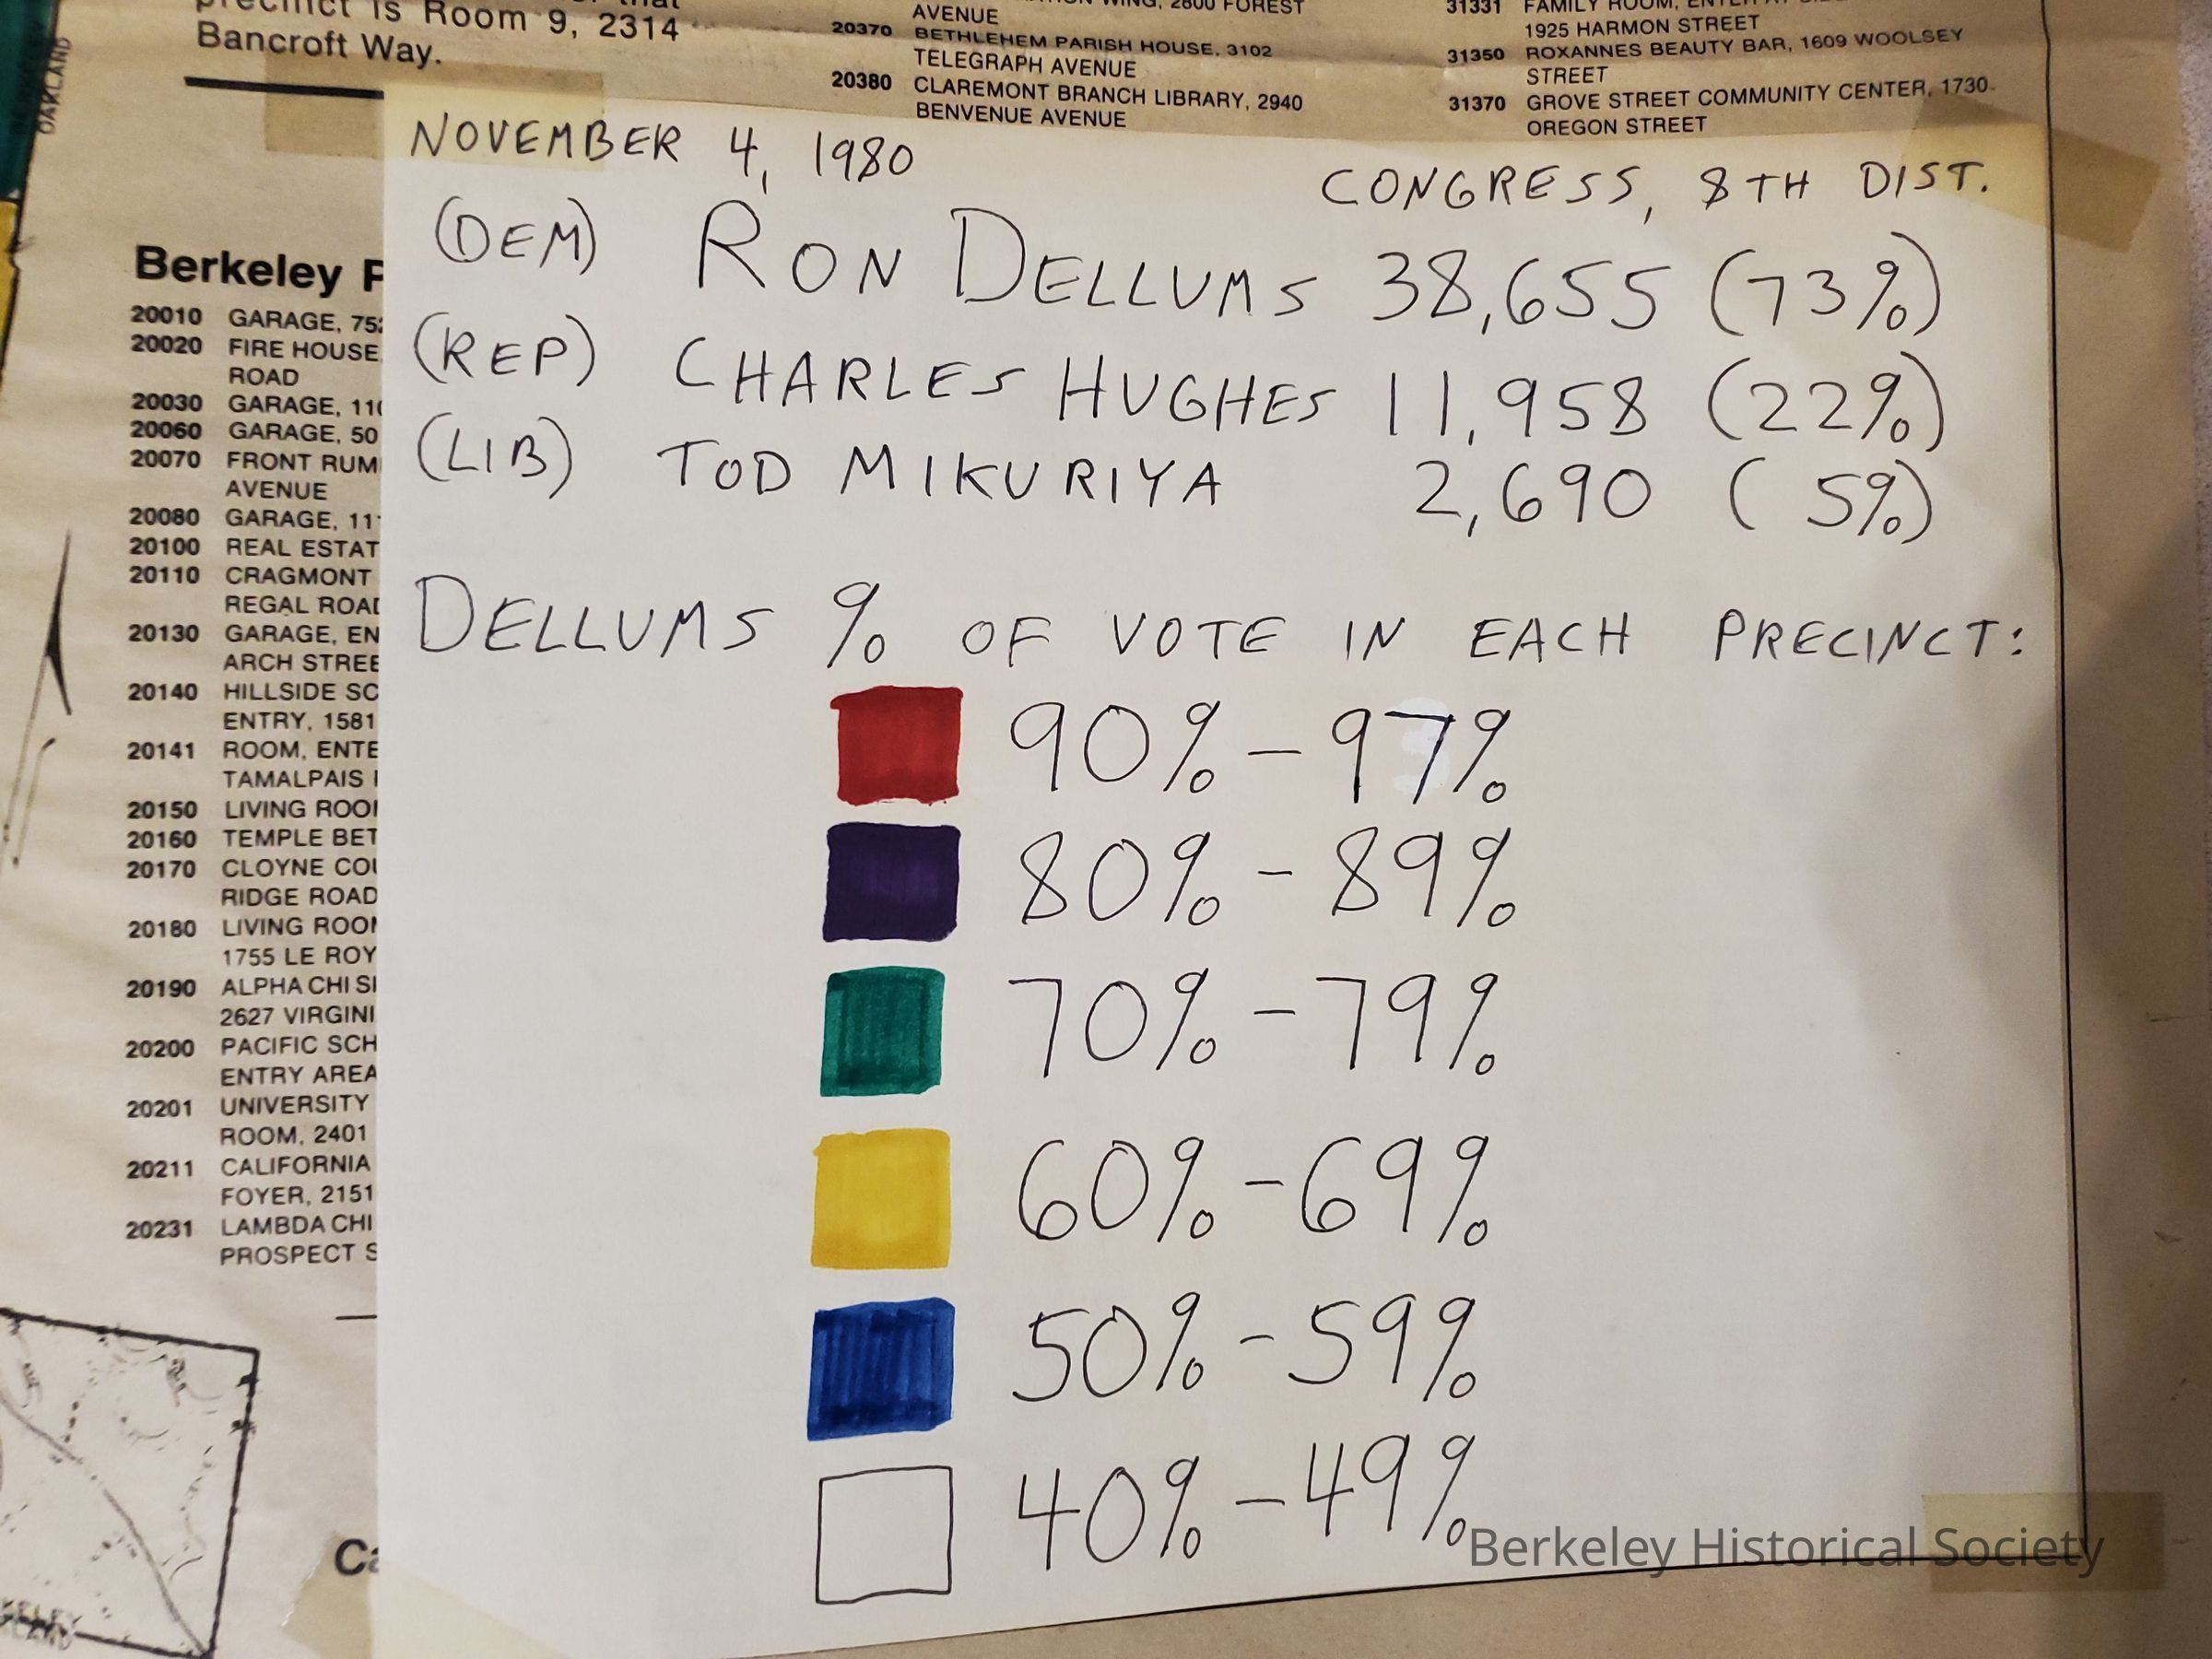 precinct is Room 9, 2314
Bancroft Way.
AVENUE
20370 BETHLEHEM PARISH HOUSE, 3102
TELEGRAPH AVENUE
20380 CLAREMONT BRANCH LIBRARY, 2940
BENVENUE AVENUE
31331 FAMILY ROOM,
1925 HARMON STREET
31350 ROXANNES BEAUTY BAR, 1609 WOOLSEY
STREET
31370 GROVE STREET COMMUNITY CENTER, 1730
OREGON STREET
OAKLAND
NOVEMBER 4, 1980
CONGRESS, 8TH DIST.
(DEM) RON DELLUMS 38,655 (73%)
(REP) CHARLES HUGHES 11,958 (22%)
(LIB) TOD MIKURIYA 2,690 (5%)
DELLUMS % OF VOTE IN EACH PRECINCT:
90% - 97%
80% - 89%
70% - 79%
60% - 69%
50% - 59%
40% - 49%
Berkeley P
20010 GARAGE, 75
20020 FIRE HOUSE
ROAD
20030 GARAGE, 110
20060 GARAGE, 50
20070 FRONT RUM
AVENUE
20080 GARAGE, 11
20100 REAL ESTAT
20110 CRAGMONT
REGAL ROAD
20130 GARAGE, EN
ARCH STREE
20140 HILLSIDE SC
ENTRY, 1581
20141 ROOM, ENTE
TAMALPAIS
20150 LIVING ROO
20160 TEMPLE BET
20170 CLOYNE COU
RIDGE ROAD
20180 LIVING ROO
1755 LE ROY
20190 ALPHA CHI SI
2627 VIRGINI
20200 PACIFIC SCH
ENTRY AREA
20201 UNIVERSITY
ROOM, 2401
20211 CALIFORNIA
FOYER, 2151
20231 LAMBDA CHI
PROSPECT S
Ca
Berkeley Historical Society